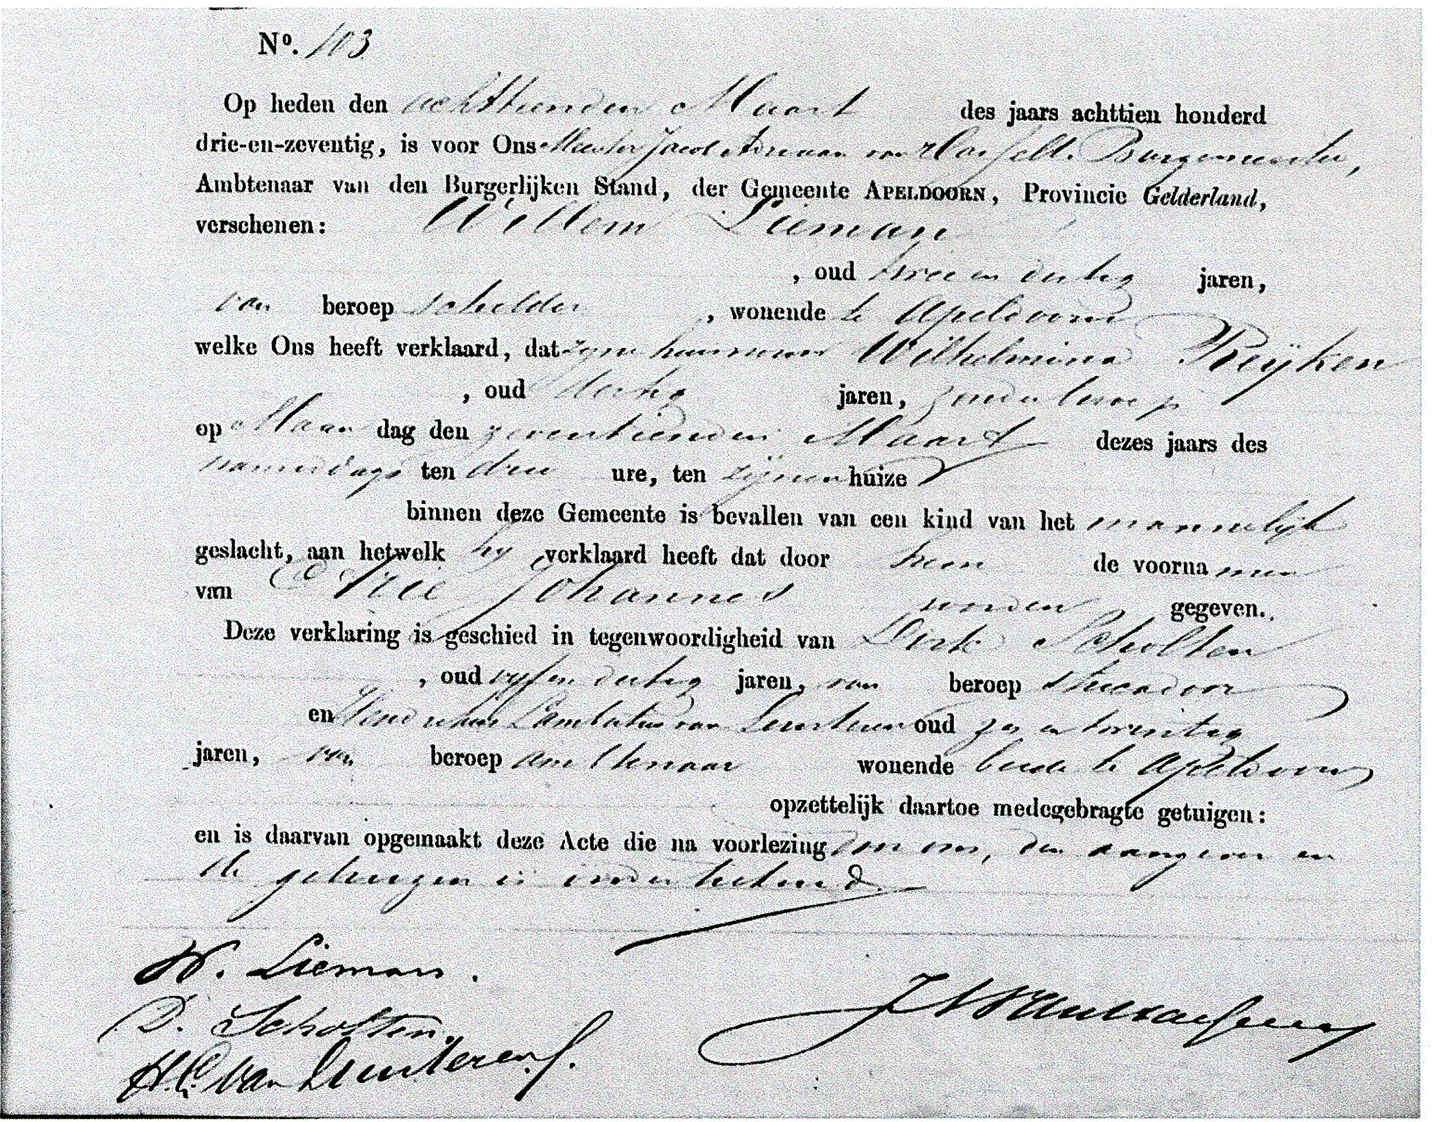 No. 103
Op heden den achttienden Maart des jaars achttien honderd
drie-en-zeventig, is voor Ons Meester Jacob Adriaan van Hasselt, Burgemeester,
Ambtenaar van den Burgerlijken Stand, der Gemeente APELDOORN, Provincie Gelderland,
verschenen: Willem Lieman
, oud twee en dertig jaren,
van beroep schilder, wonende te Apeldoorn
welke Ons heeft verklaard, dat zijne huisvrouw Wilhelmina Reijken
, oud dertig jaren, zonder beroep
op Maandag den zeventienden Maart dezes jaars des
namiddags ten drie ure, ten zijnen huize
binnen deze Gemeente is bevallen van een kind van het mannelijk
geslacht, aan hetwelk hij verklaard heeft dat door hem de voornamen
van Johannes worden gegeven.
Deze verklaring is geschied in tegenwoordigheid van Dirk Scholten
, oud vijf en dertig jaren, van beroep
en Hendrikus Lambertus van Lunteren oud zes en twintig
jaren, van beroep ambtenaar wonende beide te Apeldoorn
opzettelijk daartoe medegebragte getuigen:
en is daarvan opgemaakt deze Acte die na voorlezing door ons, den aangever en
de getuigen is onderteekend.
W. Lieman.
D. Scholten.
H. L. van Lunteren.